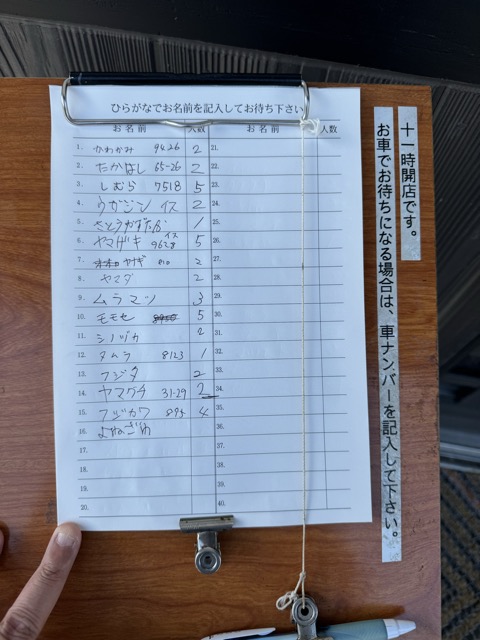 ひらがなでお名前を記入してお待ち下さい
お名前 人数 お名前 人数
1. かわかみ 9426 2 21.
2. たかはし 65-26 2 22.
3. しむら 7518 5 23.
4. ウガジン イス 2 24.
5. さとうかずたか 1 25.
6. ヤマザキ イス 9628 5 26.
7. ヤナギ 2 27.
8. ヤマダ 2 28.
9. ムラマツ 3 29.
10. モモセ 5 30.
11. シノヅカ 2 31.
12. タムラ 8123 1 32.
13. フジタ 2 33.
14. ヤマグチ 31-29 2 34.
15. フジカワ 4 35.
16. よねざわ 36.
17. 37.
18. 38.
19. 39.
20. 40.
十一時開店です。
お車でお待ちになる場合は、車ナンバーを記入して下さい。